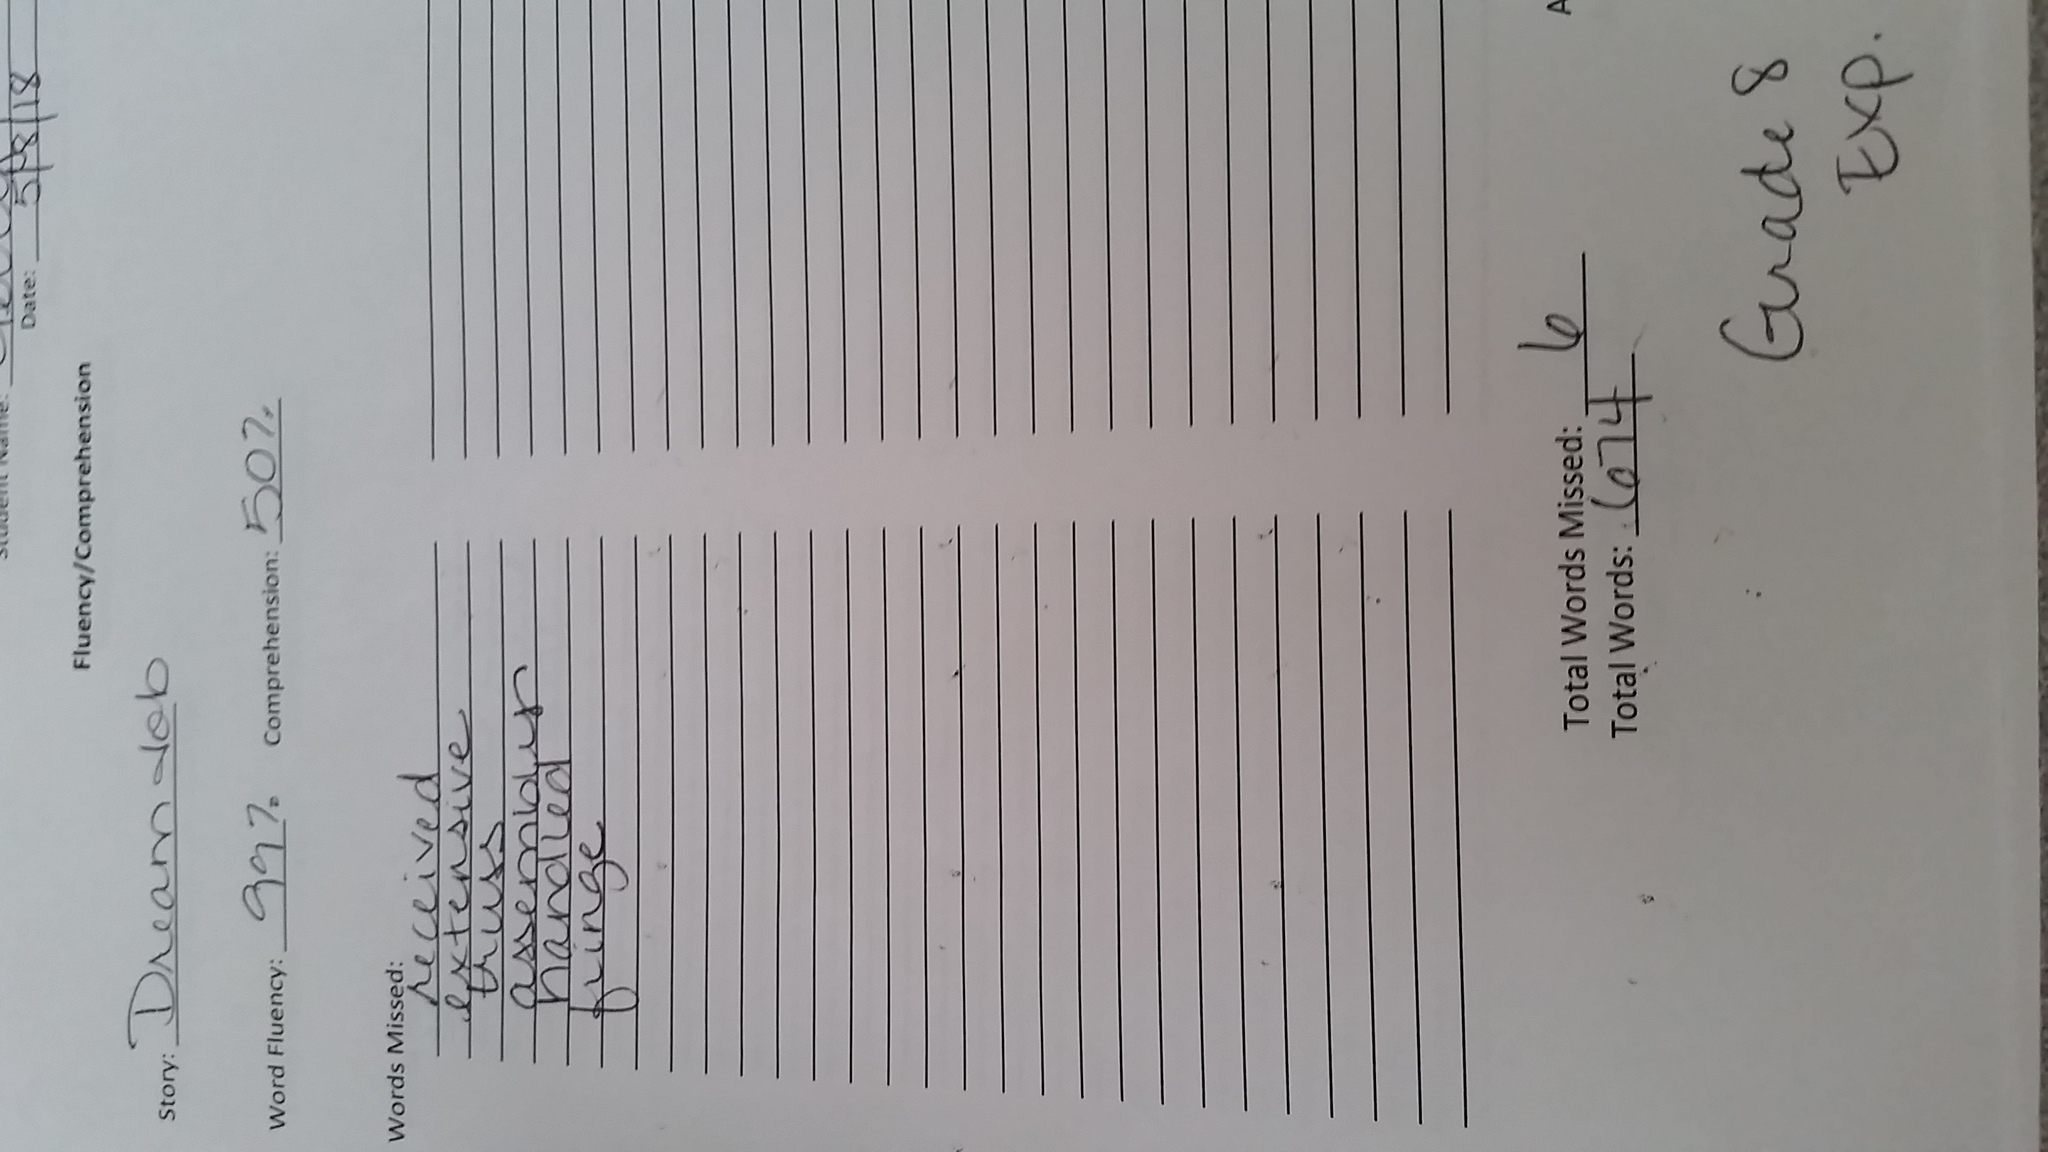 Student Name:
Date: 5/8/18
Fluency/Comprehension
Story: Dream Job
Word Fluency: 99% Comprehension: 50%
Words Missed:
received
extensive
truss
assembler
handled
fringe
Total Words Missed: 6
Total Words: 674
Grade 8
Exp.